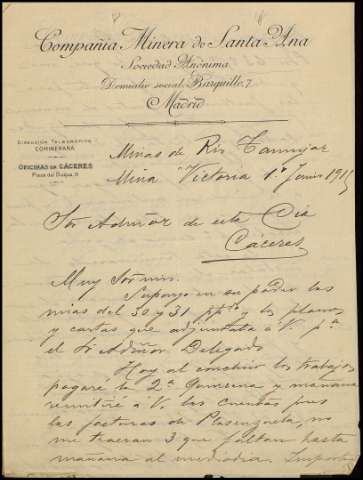 Compañia Minera de Santa Ana
Sociedad Anónima
Domicilio social, Barquillo, 7
Madrid
DIRECCIÓN TELEGRÁFICA
COMINERANA
OFICINAS DE CÁCERES
Plaza del Duque, 11
Minas de Rio Tamujar
Mina Victoria 1º Junio 191
Sor Admñor de esta Cia
Cáceres
Muy Sor mio.
Supongo en su poder las
mias del 30 y 31 ppdo y los planos
y cartas que adjuntaba á V. pª
el Sr Admñor Delegado
Hoy al concluir los trabajos
pagaré la 2ª Quincena y mañana
remitiré á V. las cuentas pues
las facturas de Plasenzuela, no
me traeran 3 que faltan hasta
mañana al mediodia.